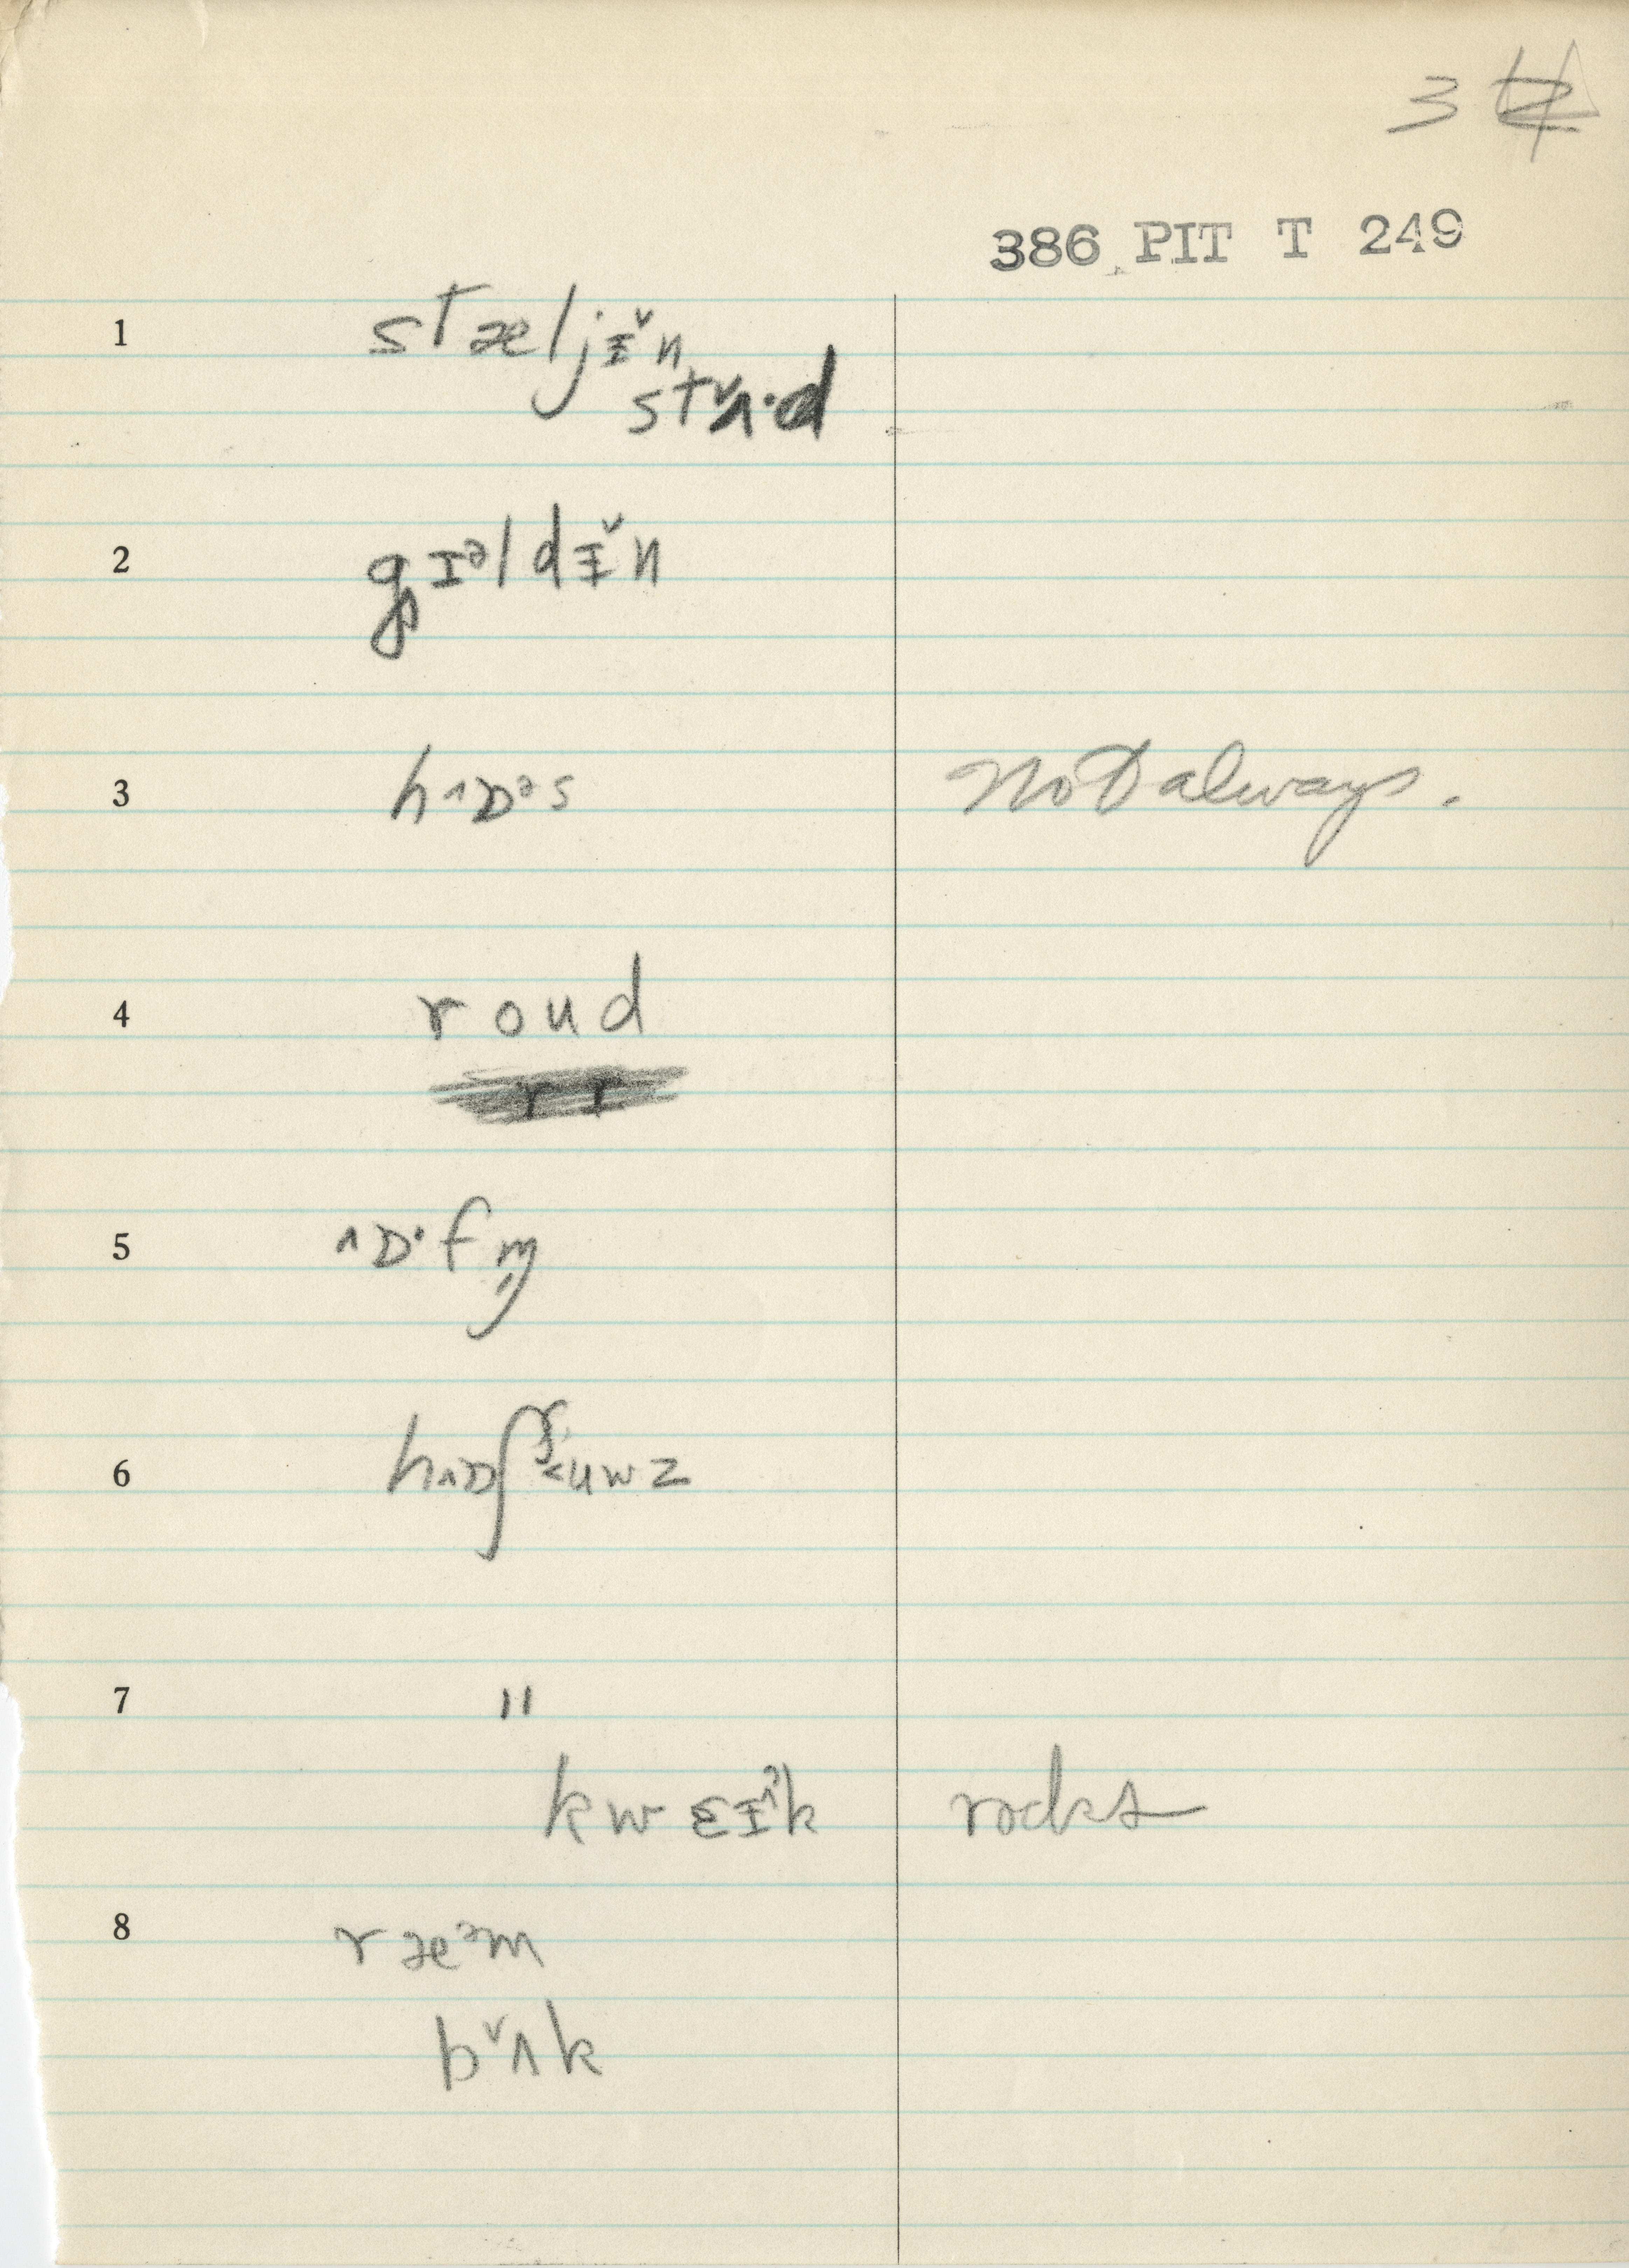 3
386 PIT T 249
1 stæljᵻ̌n
stˇʌ·d
2 gɪᵊldᵻ̌n
3 h^ɒᵊs Not always.
4 roud
5 ^ɒ·fm̩
6 h^ɒʃᶴ˂uwz
7 "
kwɛᵻˀk rocks
8 ræᵊm
bˇʌk